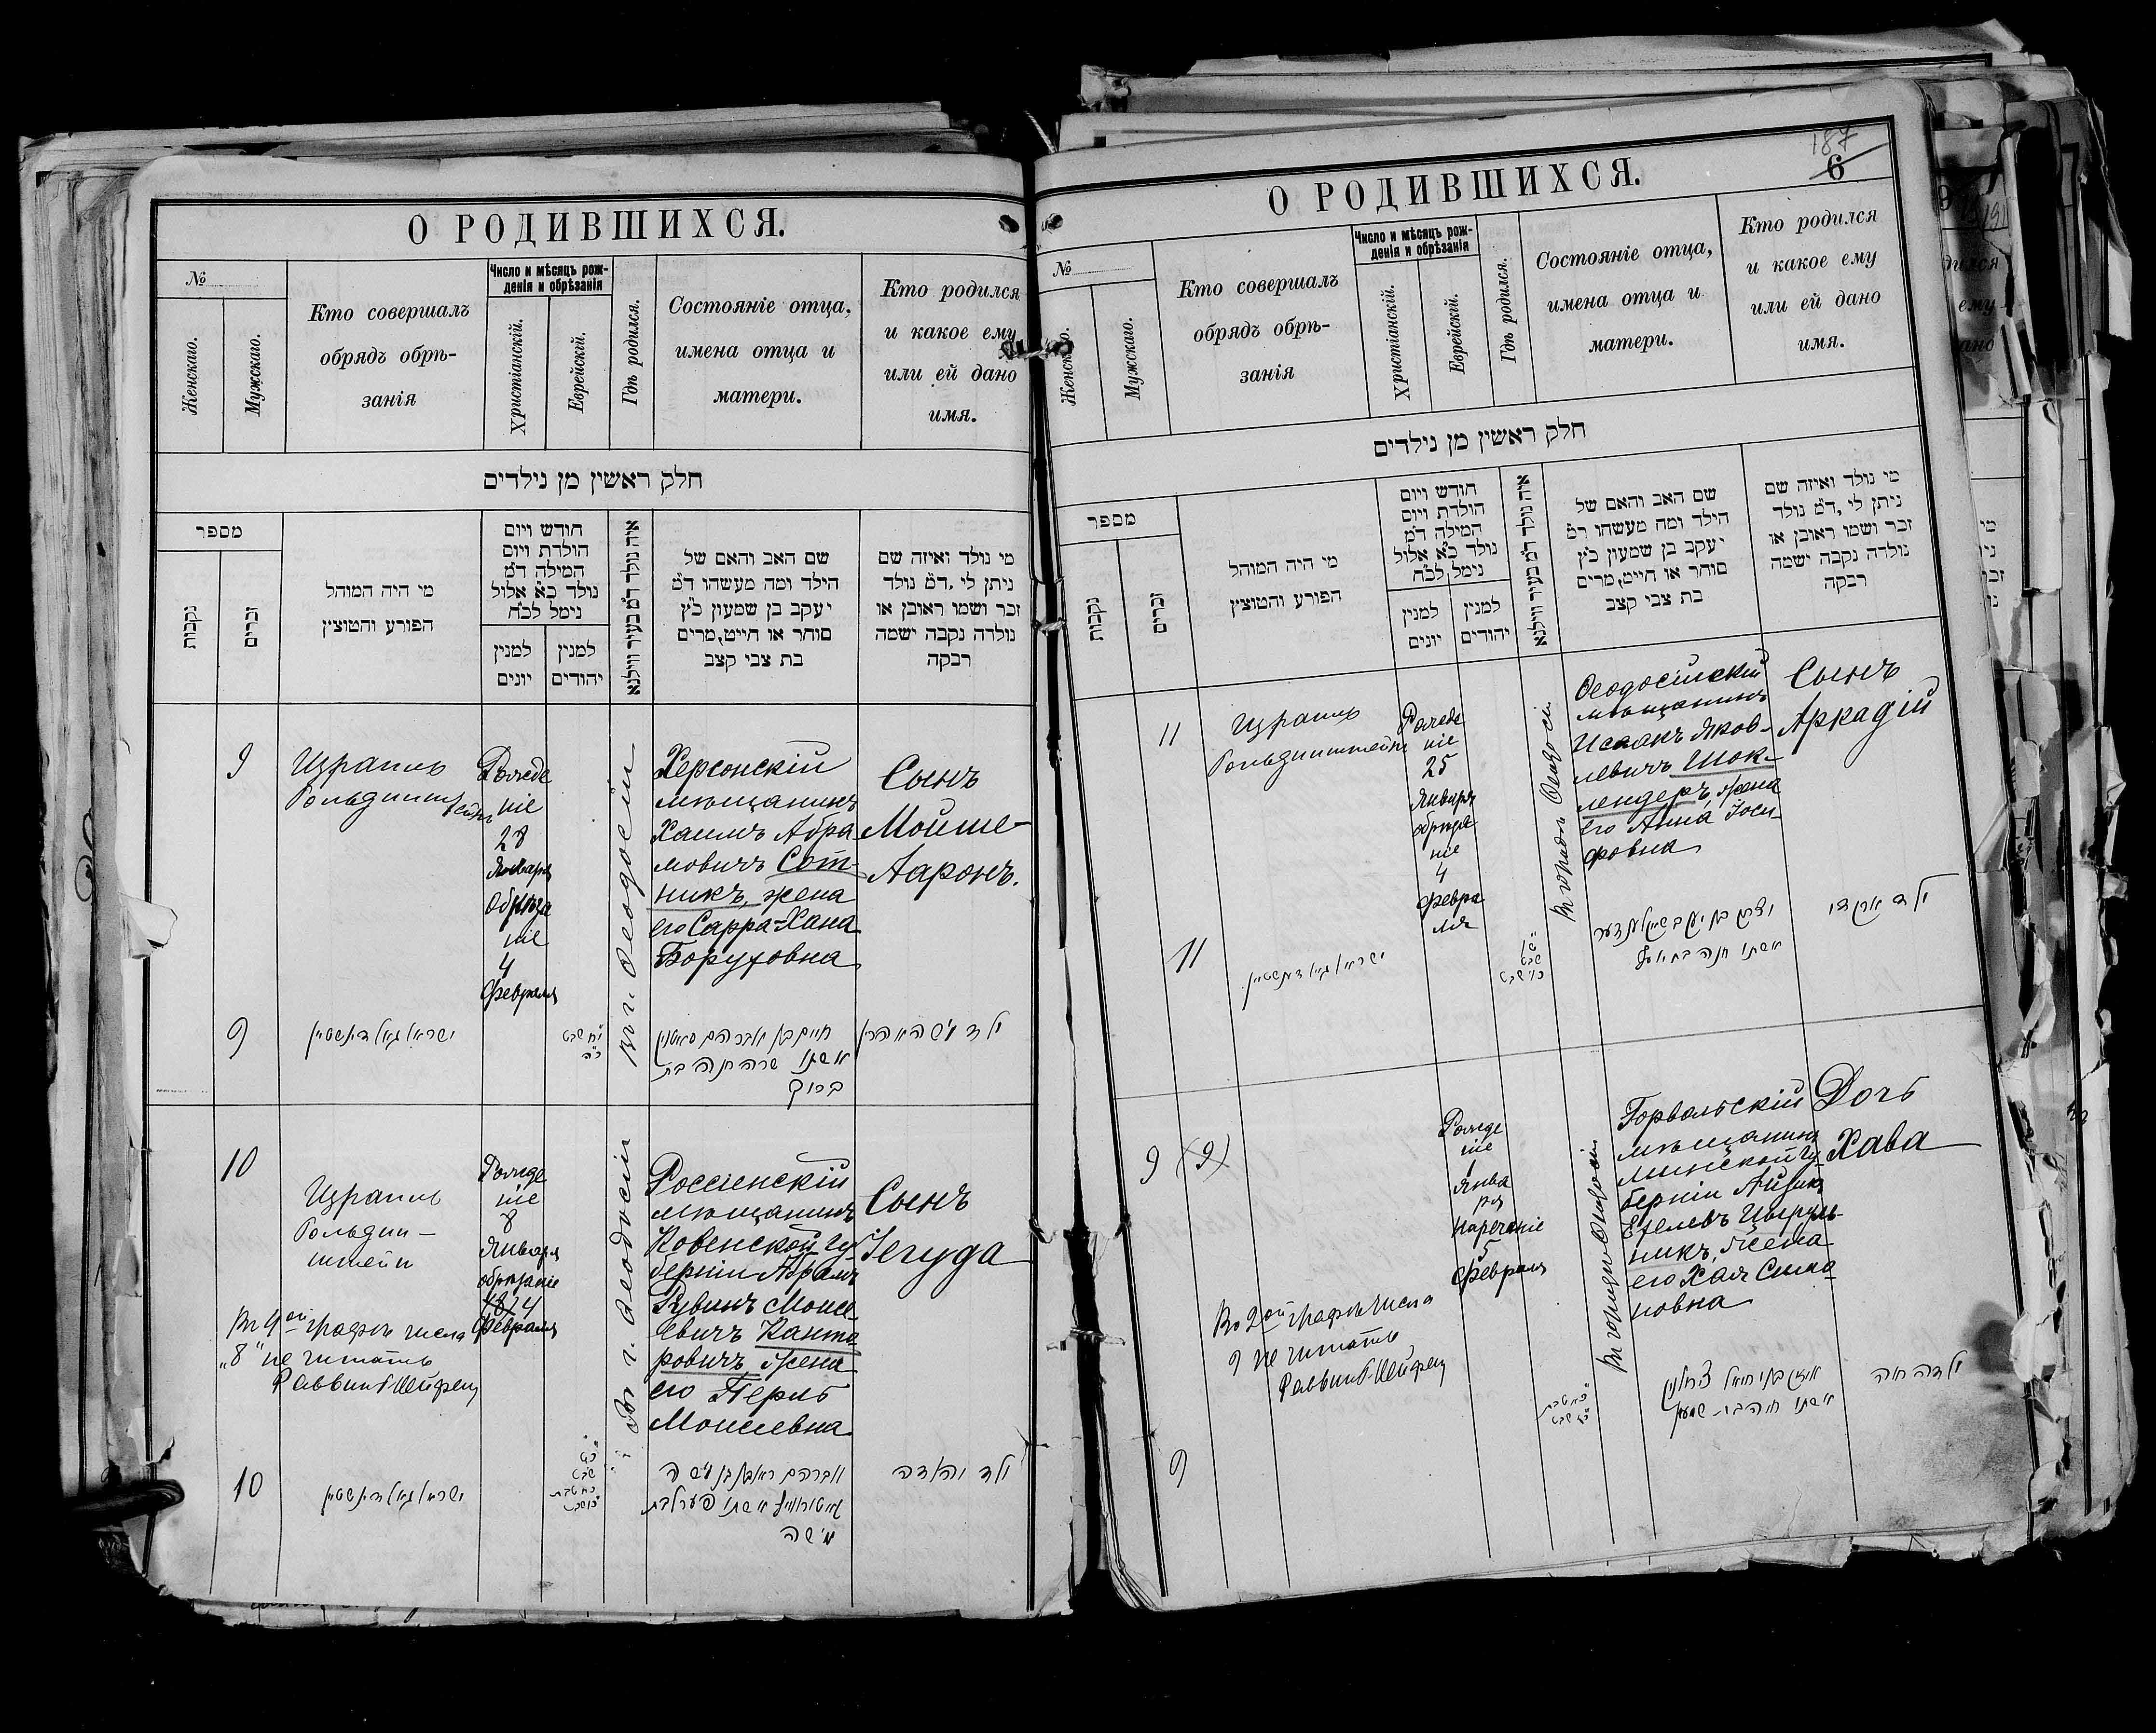 О РОДИВШИХСЯ.
№
Женскаго.
Мужскаго.
Кто совершалъ
обрядъ обрѣ-
занія
Число и мѣсяцъ рож-
денія и обрѣзанія
Христіанскій.
Еврейскій.
Гдѣ родился.
Состояніе отца,
имена отца и
матери.
Кто родился
и какое ему
или ей дано
имя.
חלק ראשין מן נילדים
מספר
נקבות
זכרים
מי היה המוהל
הפורע והטוצץ
חודש ויום
הולדת ויום
המילה ד״מ
נולד כ״א אלול
נימל לכ״ח
למנין
יונים
למנין
יהודים
איה נולד ד״מ בעיר ווילנא
שם האב והאם של
הילד ומה מעשהו ד״מ
יעקב בן שמעון כ״ץ
סוחר או חייט, מרים
בת צבי קצב
מי נולד ואיזה שם
ניתן לי, ד״מ נולד
זכר ושמו ראובן או
נולדה נקבה ישמה
רבקה
9
Израиль
Гольдинштейнъ
Рожде
ніе
28
Января
Обрѣза
ніе
4
Февраля
Въ г. Ѳеодосіи
Херсонскій
мѣщанинъ
Хаимъ Абра
мовичъ Сот-
никъ, жена
его Сарра-Хана
Боруховна
Сынъ
Мойше-
Ааронъ.
9
ישראל גאלדינשטיין
י״ח שבט
כ״ה
חיים בן אברהם סאטניק
אשתו שרה חנה בת
ברוך
ילד משה אהרין
10
Израиль
Гольдин-
штейн
Рожде
ніе
8
Января
обрѣзаніе
4
Февраля
Въ г. Ѳеодосіи
Россіенскій
мѣщанинъ
Ковенской гу
берніи Абрамъ
Рувинъ Моисе
евичъ Канто
ровичъ жена
его Перль
Моисеевна
Сынъ
Іегуда
Въ 4ой графѣ числа
„8" не читать
Раввинъ
10
ישראל גאלדינשטיין
אברהם ראובן בן משה
קאנטוראוויץ אשתו פערל בת
משה
ילד יהודה
187
6
О РОДИВШИХСЯ.
№
Женскаго.
Мужскаго.
Кто совершалъ
обрядъ обрѣ-
занія
Число и мѣсяцъ рож-
денія и обрѣзанія
Христіанскій.
Еврейскій.
Гдѣ родился.
Состояніе отца,
имена отца и
матери.
Кто родился
и какое ему
или ей дано
имя.
חלק ראשין מן נילדים
מספר
נקבות
זכרים
מי היה המוהל
הפורע והטוצץ
חודש ויום
הולדת ויום
המילה ד״מ
נולד כ״א אלול
נימל לכ״ח
למנין
יונים
למנין
יהודים
איה נולד ד״מ בעיר ווילנא
שם האב והאם של
הילד ומה מעשהו ד״מ
יעקב בן שמעון כ״ץ
סוחר או חייט, מרים
בת צבי קצב
מי נולד ואיזה שם
ניתן לי, ד״מ נולד
זכר ושמו ראובן או
נולדה נקבה ישמה
רבקה
11
Израиль
Гольдинштейнъ
Рожде
ніе
25
Января
обрѣза
ніе
4
февра
ля
Въ городѣ Ѳеодосіи
Ѳеодосійскій
мѣщанинъ
Исаакъ Яков-
левичъ Шок-
лендеръ, жена
его Анна Іоси
фовна
Сынъ
Аркадій
11
ישראל גאלדינשטיין
יצחק בן יעקב שאקלענדער
אשתו חנה בת יוסף
ילד ארקדי
9 (9)
Рожде
ніе
1
Янва
ря
Нареченіе
5
Февраля
Въ городѣ Ѳеодосіи
Горвальскій
мѣщанинъ
Минской гу
берніи Айзикъ
Цыруль-
никъ, жена
его Хая Симо
новна
Дочь
Хава
Во 2ой графѣ числа
9 не читать
Раввинъ
9
אשתו חיה בת שמעון
ילדה חוה